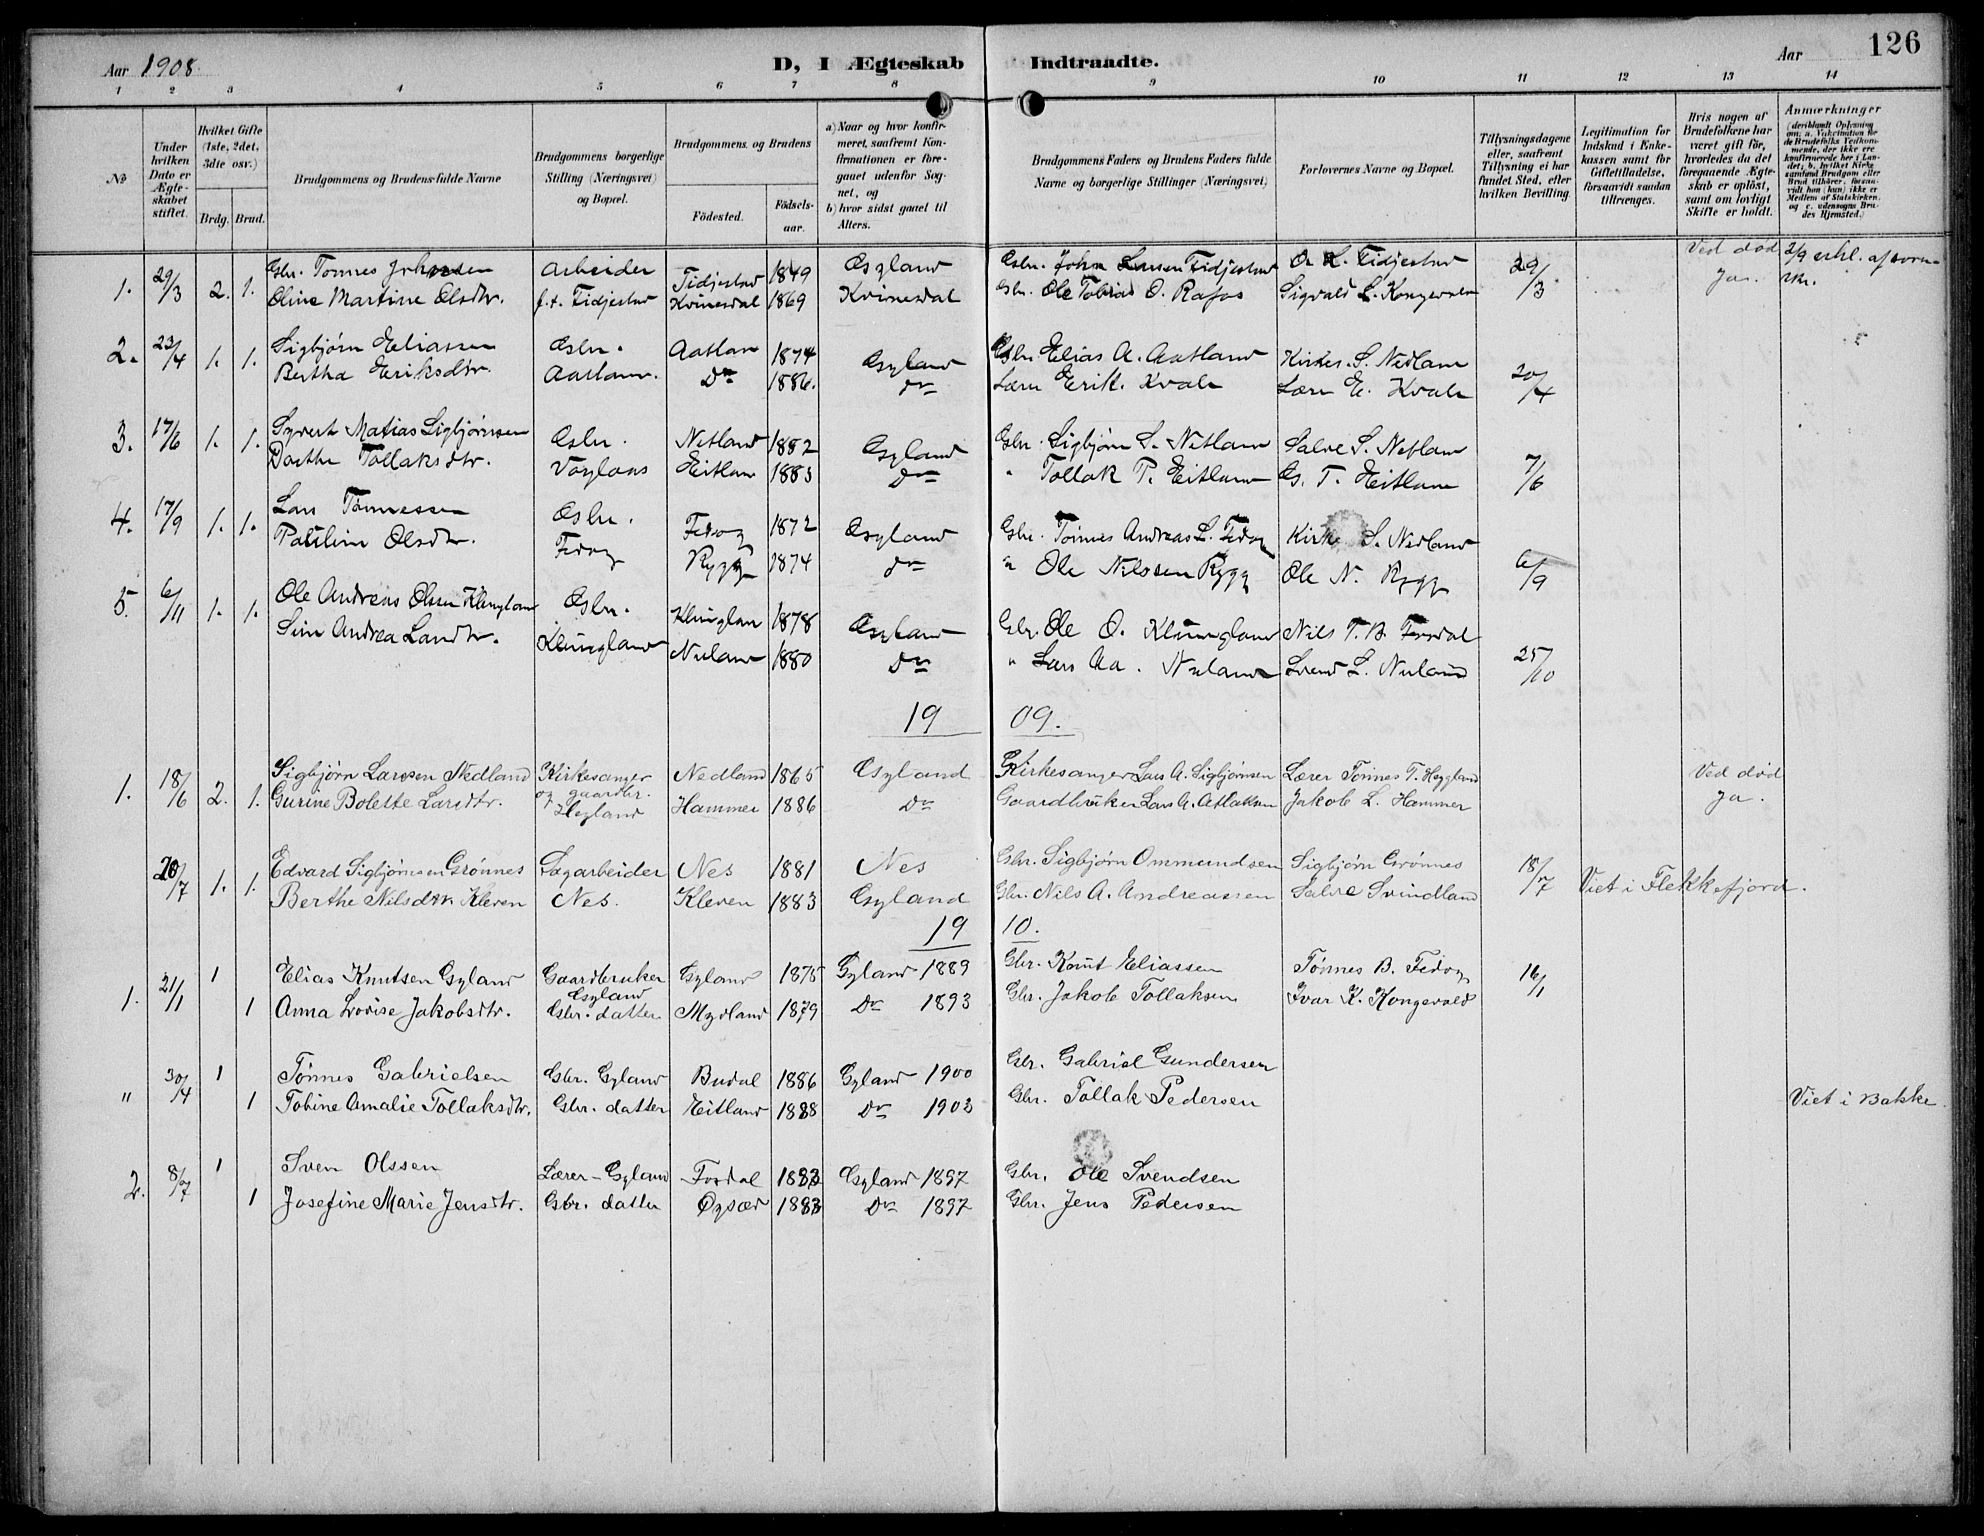 Aar 1908.
D, I Ægteskab Indtraadte.
Aar 126
1 2 3 4 5 6 7 8 9 10 11 12 13 14
No
Under hvilken Dato er Ægteskabet stiftet.
Hvilket Gifte (1ste, 2det, 3die osv.)
Brdg. Brud.
Brudgommens og Brudens fulde Navne
Brudgommens borgerlige Stilling (Næringsvei) og Bopæl.
Brudgommens og Brudens
Födested. Födselsaar.
a) Naar og hvor konfirmeret, saafremt Konfirmationen er foregaaet udenfor Sognet, og
b) hvor sidst gaaet til Alters.
Brudgommens Faders og Brudens Faders fulde Navne og borgerlige Stillinger (Næringsvei)
Forlovernes Navne og Bopæl.
Tillysningsdagene eller, saafremt Tillysning ei har fundet Sted, efter hvilken Bevilling.
Legitimation for Indskud i Enkekassen samt for Giftetilladelse, forsaavidt saadan tiltrænges.
Hvis nogen af Brudefolkene har været gift før, hvorledes da det foregaaende Ægteskab er opløst, samt om lovligt Skifte er holdt.
Anmærkninger (deriblandt Oplysning om: a. Vakcination for de Brudefolks Vedkommende, der ikke ere konfirmerede her i Landet; b. hvilket Kirkesamfund Brudgom eller Brud tilhører, forsaavidt hon (hun) ikke er Medlem af Statskirken, og c. udensogns Brudes Hjemsted.)
1. 29/3 2. 1. Gbr. Tønnes Johnsen Arbeider Fidjestad 1849 Gyland Gbr. John Larsen Fidjestad O. L. Fidjestad 29/3 Ved død 2/9 erkl. af
Oline Martine Olsdtr. f.t. Fidjestad Kvinesdal 1869 Kvinesdal Gbr. Ole Tobias O. Rafos Sigvald L. Kongevold Ja.
2. 23/4 1. 1. Sigbjørn Eliassen Gbr. Aatland 1874 Gyland Gbr. Elias A. Aatland Kirkes. S. Nedland 20/4
Bertha Eriksdtr. Aatland. Do 1886. do Lærer Erik. Kvale Lærer E. Kvale
3. 17/6 1. 1. Syvert Matias Sigbjørnsen Gbr. Netland 1882 Gyland Gbr. Sigbjørn S. Netland Salve S. Netland 7/6
Dorthe Tollaksdtr. Eitland 1883 do " Tollak T. Eitland G. T. Eitland
4. 17/9 1. 1. Lars Tønnessen Gbr. Fedog 1872 Gyland Gbr. Tønnes Andreas L. Fedog Kirkes S. Nedland 6/9
Pauline Olsdtr. Fedog Rygg 1874 do " Ole Nilssen Rygg Ole N. Rygg
5. 6/11 1. 1. Ole Andreas Olsen Klungland Gbr. Klungland 1878 Gyland Gbr. Ole O. Klungland Nils T. B. Fosdal 25/10
Sine Andrea Larsdtr. Klungland Nuland 1880 do " Lars Aa. Nuland Svend L. Nuland
19 09.
1. 18/6 2. 1. Sigbjørn Larssen Nedland Kirkesanger og gaardbr. Nedland 1865 Gyland Kirkesanger Lars A. Sigbjørnsen Lærer Tønnes T. Heggland Ved død
Gurine Bolette Larsdtr. Hegland Hammer 1886 Do Gaardbruker Lars A. Atlaksen Jakob L. Hammer Ja.
20/7 1. 1. Edvard Sigbjørnsen Grønnes Sagarbeider Nes 1881 Nes Gbr. Sigbjørn Ommundsen Sigbjørn Grønnes 18/7 Viet i Flekkefjord.
Berthe Nilsdtr. Kleven Nes. Kleven 1883 Gyland Gbr. Nils A. Andreassen Salve Svindland
19 10.
1. 21/1 1 Elias Knutsen Gyland Gaardbruker Gyland Gyland 1875 Gyland 1889 Gbr. Knut Eliassen Tønnes B. Fedog 16/1
1 Anna Lovise Jakobsdtr. Gbr. datter Mydland 1879 Do 1893 Gbr. Jakob Tollaksen Ivar K. Kongevold
" 30/4 1 Tønnes Gabrielsen Gbr. Gyland Budal 1886 Gyland 1900 Gbr. Gabriel Gundersen
1 Tobine Amalie Tollaksdtr. Gbr. datter Eitland 1888 Do 1903 Gbr. Tollak Pedersen Viet i Bakke.
2. 8/7 1 Sven Olssen Lærer - Gyland Fosdal 1883 Gyland 1897 Gbr. Ole Svendsen
1 Josefine Marie Jensdtr. Gbr. datter Øysæd 1883 Do 1897 Gbr. Jens Pedersen